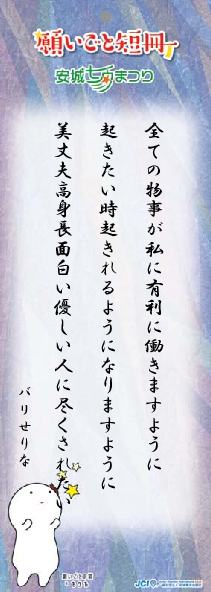 願いごと短冊
安城七夕まつり
全ての物事が私に有利に働きますように
起きたい時起きれるようになりますように
美丈夫高身長面白い優しい人に尽くされたい
バリせりな
願いごと短冊
JCI